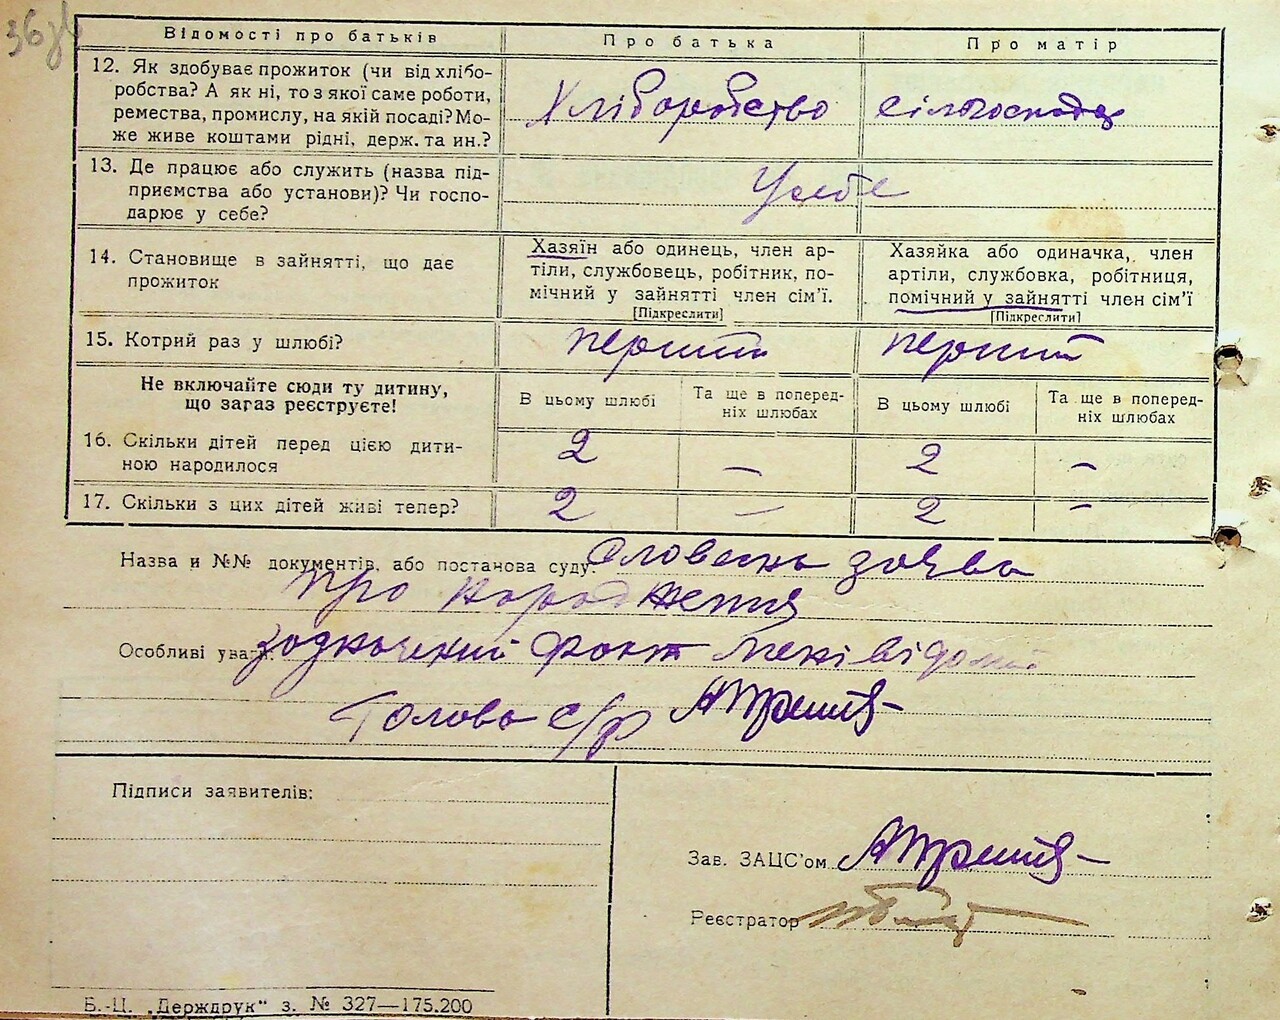 36зв
Відомості про батьків Про батька Про матір
12. Як здобуває прожиток (чи від хлібо-
робства? А як ні, то з якої саме роботи,
ремества, промислу, на якій посаді? Мо-
же живе коштами рідні, держ. та ин.?
Хліборобство
13. Де працює або служить (назва під-
приємства або установи)? Чи госпо-
дарює у себе?
У себе
14. Становище в зайнятті, що дає
прожиток
Хазяїн або одинець, член ар-
тіли, службовець, робітник, по-
мічний у зайнятті член сім'ї.
[Підкреслити]
Хазяйка або одиначка, член
артіли, службовка, робітниця,
помічний у зайнятті член сім'ї
[Підкреслити]
15. Котрий раз у шлюбі? перший перший
Не включайте сюди ту дитину,
що загаз реєструєте!
В цьому шлюбі
Та ще в поперед-
ніх шлюбах
В цьому шлюбі
Та ще в поперед-
ніх шлюбах
16. Скільки дітей перед цією дити-
ною народилося
2 — 2 —
17. Скільки з цих дітей живі тепер? 2 — 2 —
Назва и №№ документів, або постанова суду: Словесна заява
про народження
Особливі уваги: зазначений факт мені відомий
Голова с/р
Підписи заявителів:
Зав. ЗАЦС'ом
Реєстратор
Б.-Ц. „Держдрук“ з. № 327—175.200